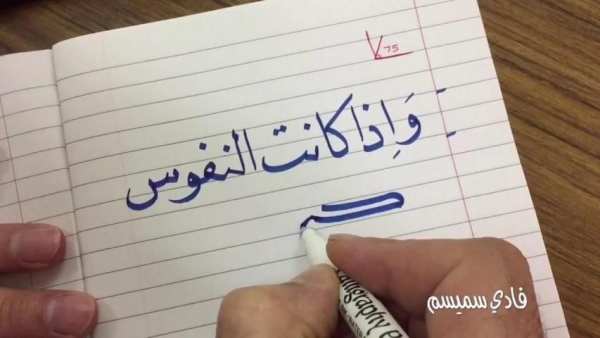 75
وَإِذا كانت النفوس
ك
calligraphy
فادي سميسم